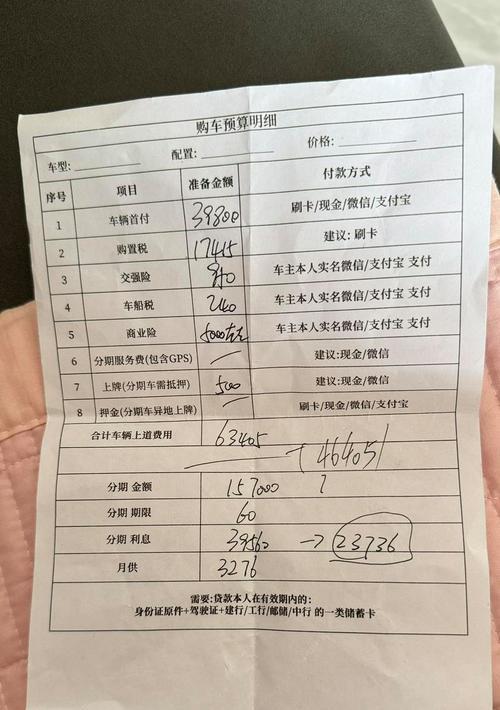 购车预算明细
车型: 配置: 价格:
序号 项目 准备金额 付款方式
1 车辆首付 39800 刷卡/现金/微信/支付宝
2 购置税 17415 建议: 刷卡
3 交强险 车主本人实名微信/支付宝 支付
4 车船税 240 车主本人实名微信/支付宝 支付
5 商业险 5000左右 车主本人实名微信/支付宝 支付
6 分期服务费(包含GPS) 建议:现金/微信
7 上牌(分期车需抵押) 500 建议:现金/微信
8 押金(分期车异地上牌) 刷卡/现金/微信/支付宝
合计车辆上道费用 63405
46405
分期 金额 157000
分期 期限 60
分期 利息 39560 → 23736
月供 3276
需要:贷款本人在有效期内的:
身份证原件+驾驶证+建行/工行/邮储/中行 的一类储蓄卡